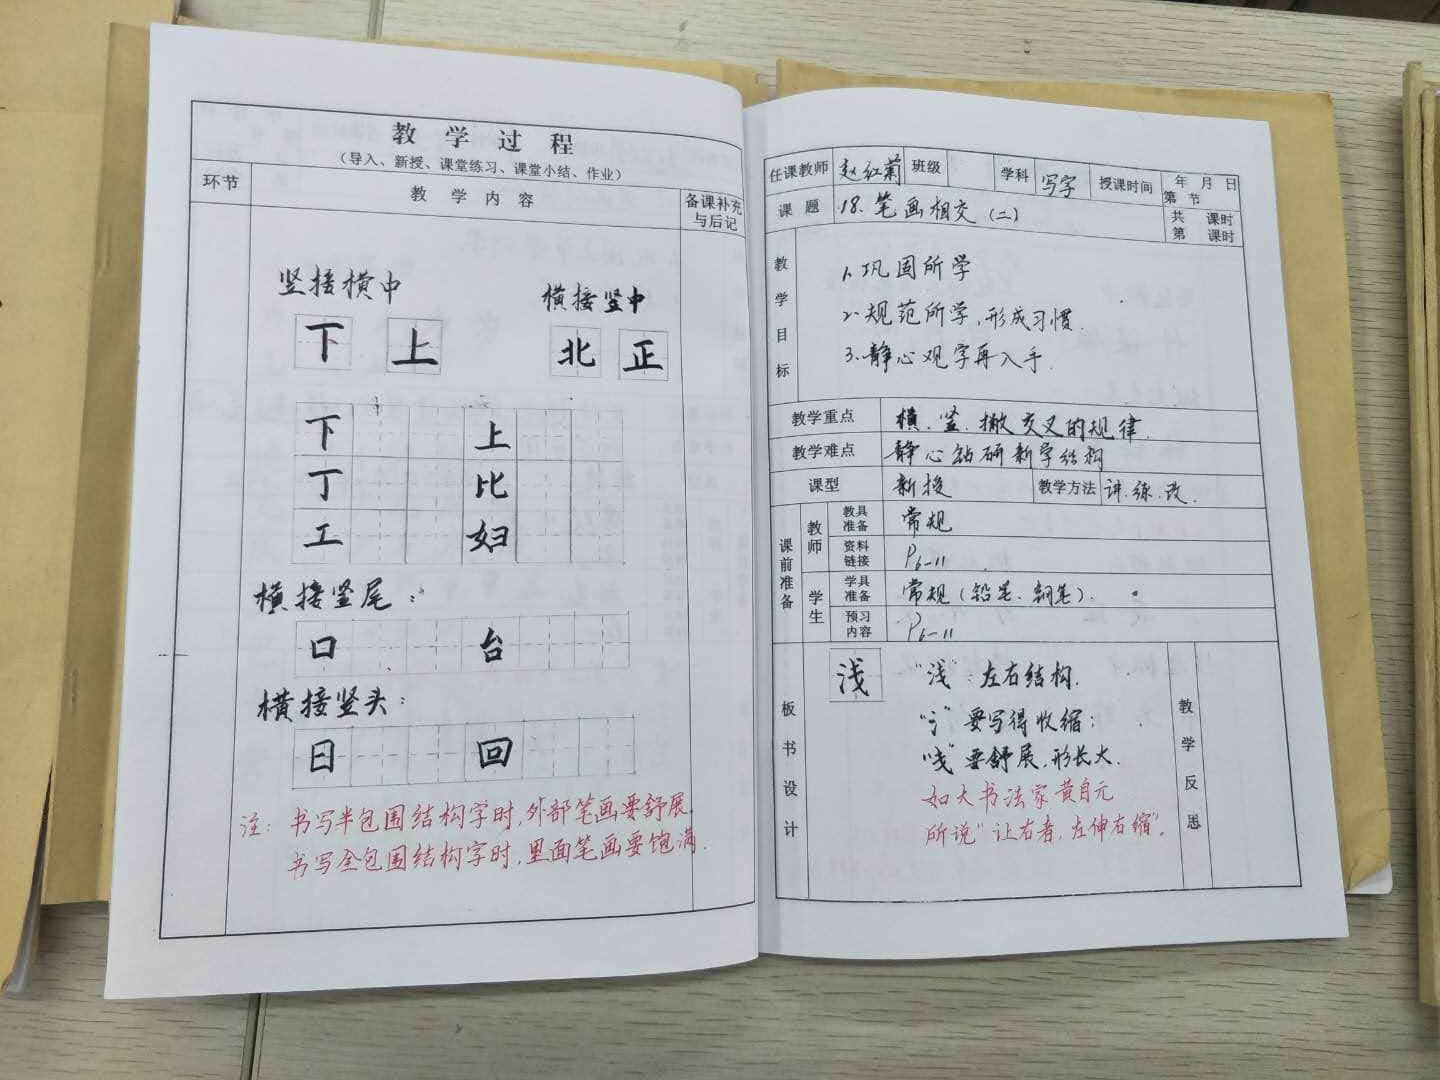 教学过程
（导入、新授、课堂练习、课堂小结、作业）
环节 教学内容 备课补充与后记
竖接横中 横接竖中
下 上 北 正
下 上
丁 比
工 妇
横接竖尾：
口 台
横接竖头：
日 回
注：书写半包围结构字时,外部笔画要舒展.
书写全包围结构字时,里面笔画要饱满.
任课教师 赵红菊 班级 学科 写字 授课时间 年 月 日 第 节
课题 18.笔画相交（二） 共 课时 第 课时
教学目标
1.巩固所学
2.规范所学,形成习惯.
3.静心观字再入手.
教学重点 横、竖、撇交叉的规律.
教学难点 静心钻研新学结构
课型 新授 教学方法 讲.练.改.
课前准备
教师 教具准备 常规
资料链接 P6-11
学生 学具准备 常规（铅笔、钢笔）.
预习内容 P6-11
板书设计
浅 "浅"：左右结构.
"氵"要写得收缩；
"戋"要舒展,形长大.
如大书法家黄自元
所说"让右者,左伸右缩".
教学反思